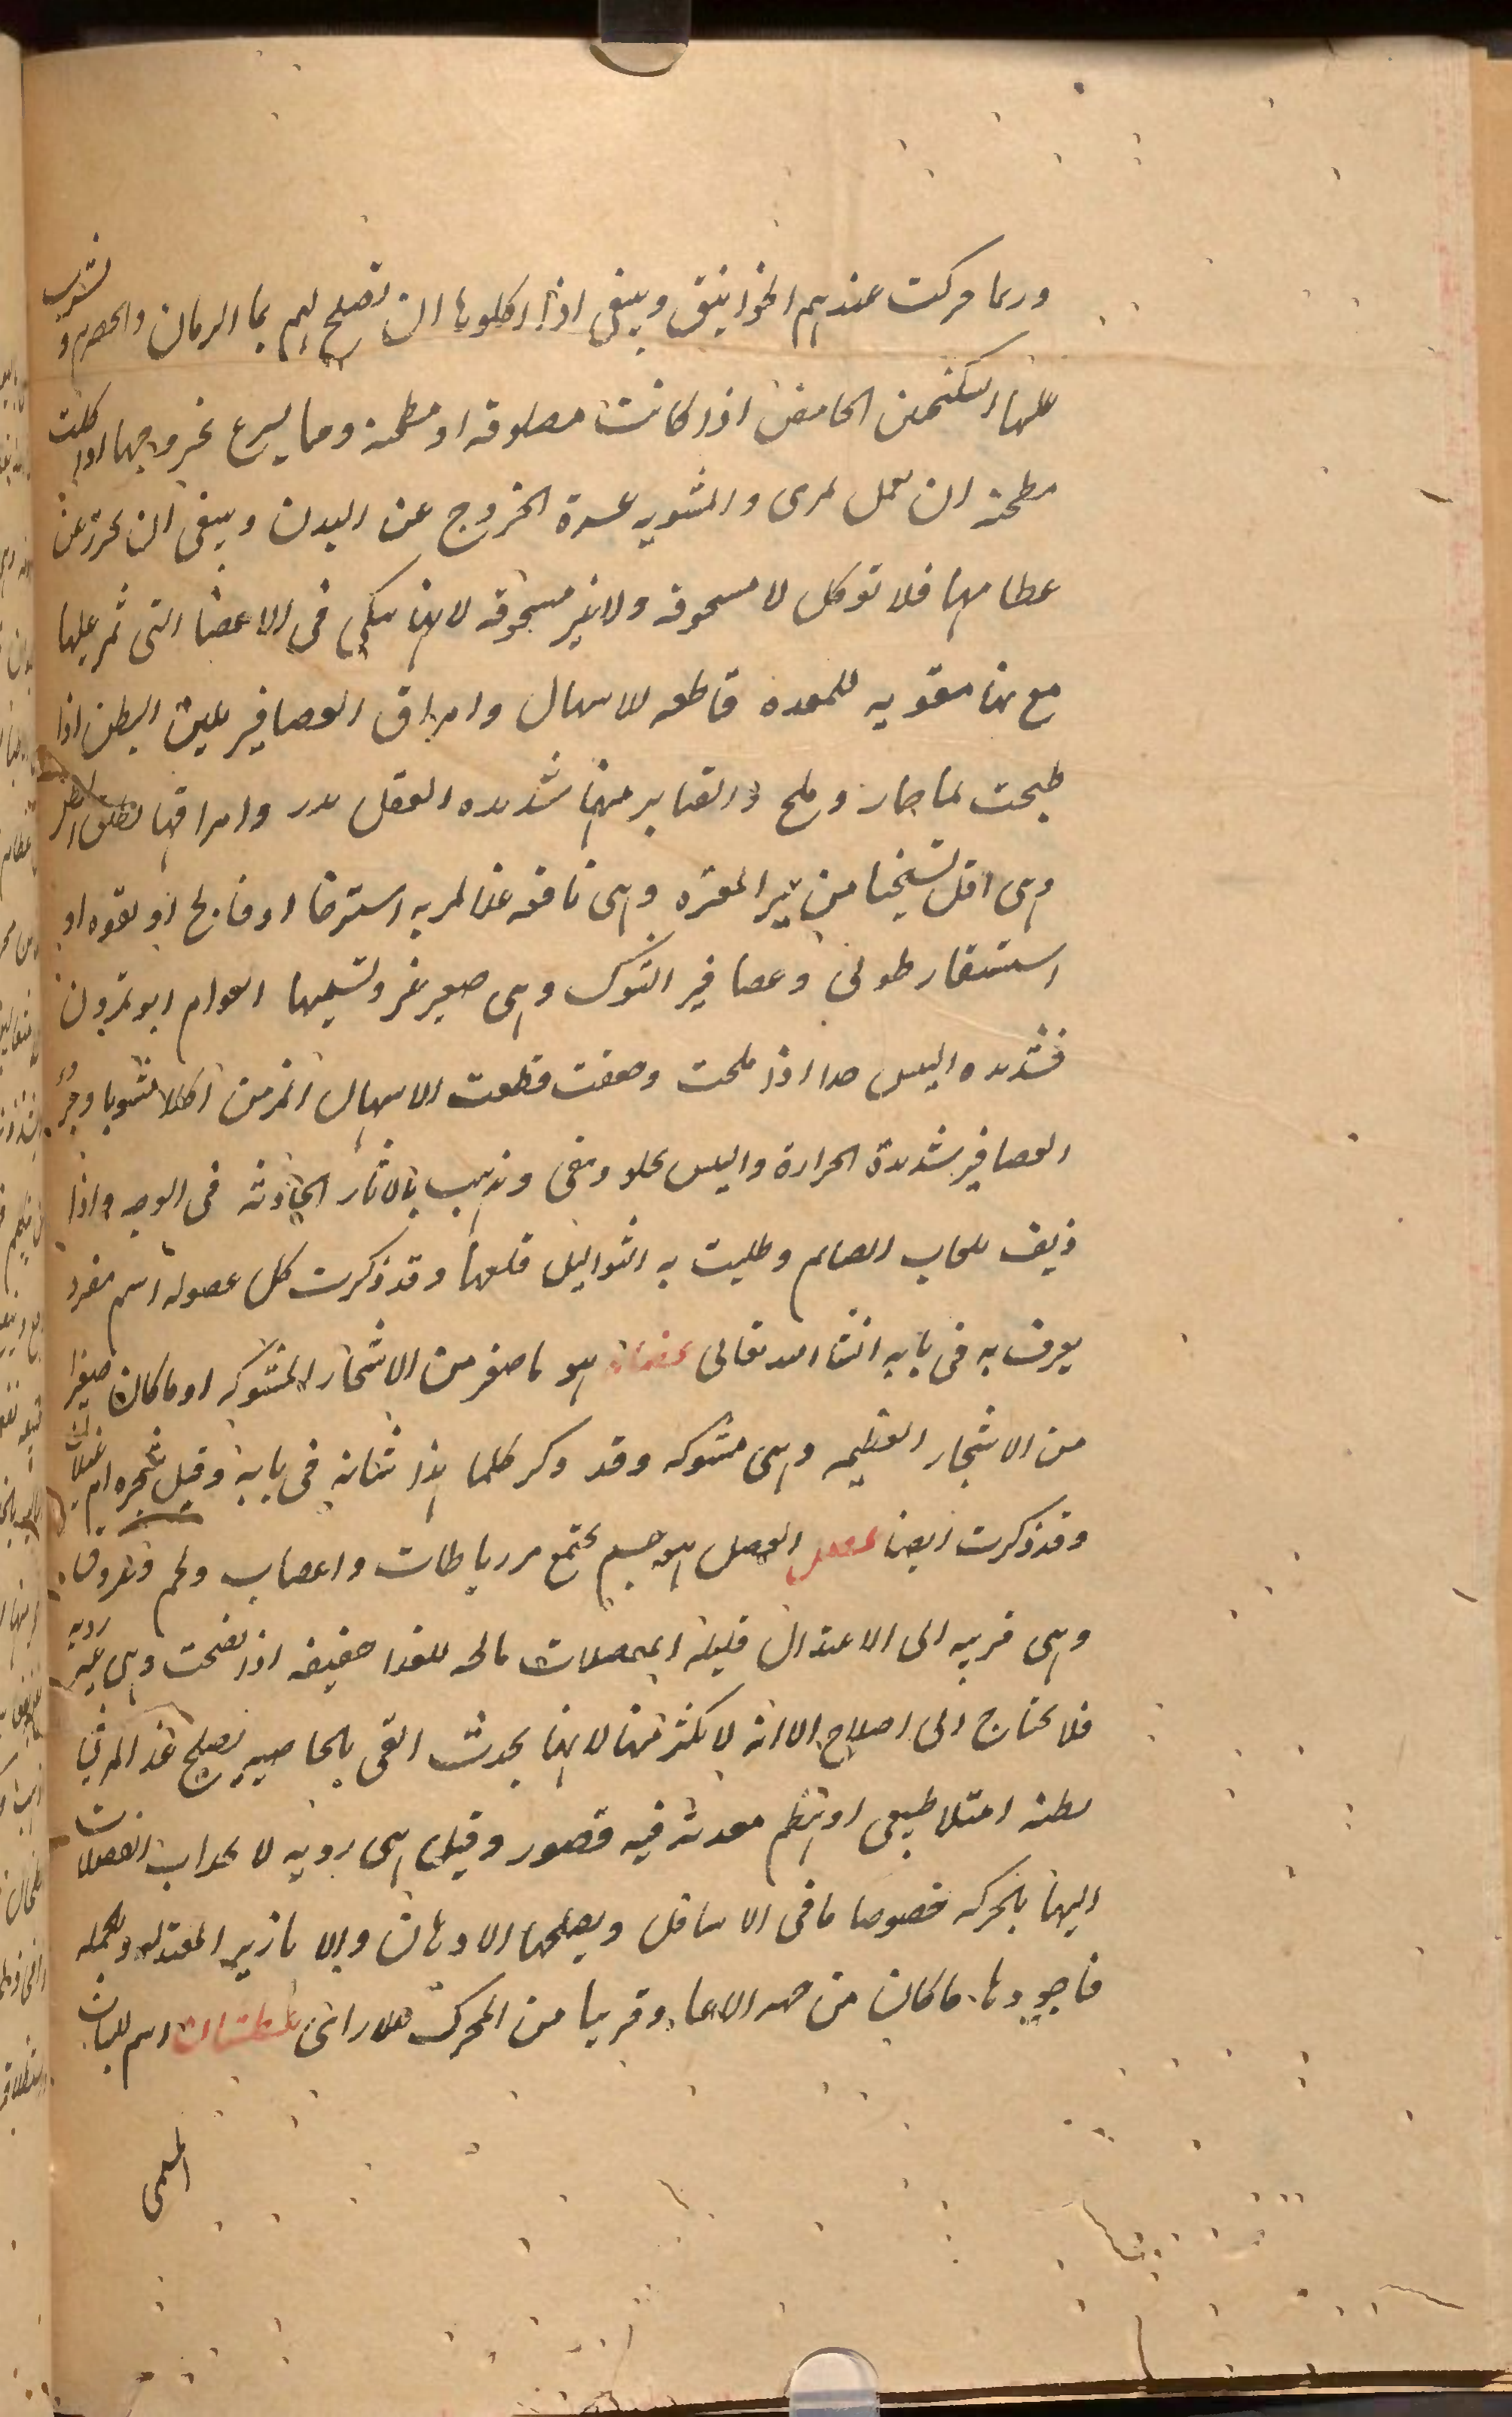 وربما حركت عندهم الخوانيق وينبغى اذا اكلوها ان تصلح لهم بما الرمان والحصرم و تشرب
عليها السكنجبين الحامض اذا كانت مصلوقه او مطجنة ومما يسرع خروجها اذا اكلت
مطجنه ان تعمل لمرى والمشويه عسرة الخروج عن البدن وينبغى ان يحرز عن
عظامها فلا توكل لا مسحوقه ولا غير مسحوقه لانها تنكى فى الاعضا التى تمر عليها
مع انها مقويه للمعده قاطعه للاسهال وامراق العصافير تلين البطن اذا
طبخت بما حار وملح والقنابر منها شديده العقل وامراقها تطلق البطن
وهى اقل تسخينا من غير المعزه وهى نافعه عن لمن به استرخا او فالج او لقوه او
استسقا رطوبى وعصافير الشوك وهى صغير غر وتسميها العوام ابو تمرون
فشديده اليبس جدا اذا ملحت وجففت قطعت الاسهال المزمن اكلا مشويا وخرو
العصافير شديدة الحرارة واليبس يجلو وينقى ويذهب بالاثار الحادثه فى الوجه واذا
ذيف بلعاب الصايم وطليت به الثواليل قلعها وقد ذكرت كل عصوله اسم مفرد
يعرف به فى بابه انشا الله تعالى عضاه هو ما صغر من الاشجار المشوكه او ما كان صغيرا
من الاشجار العظيمه وهى مشوكه وقد ذكر كلما هذا شانه فى بابه وقيل شجره ام غيلان
وقد ذكرت ايضا عضل العضل هو جسم يجتمع من رباطات واعصاب ولحم وعروق
وهى قريبه الى الاعتدال قليلة الفضلات صالحه للغذا خفيفه اذا نضجت وهى غير رديه
فلا يحتاج الى اصلاح الا انه لا يكثر منها لانها يحدث القى بالخاصيه يصلح غذا لمن فى
بطنه امتلا طبيعى او هضم معدته فيه قصور وقيل هى رديه لا نجذاب الفضلات
اليها بالحركه خصوصا ما فى الاسافل ويصلحها الادهان والابازير المعتدله وبالجمله
فاجودها ما كان من جهه الاعا وقريبا من المحرك عطشان اسم للنبات
المسمى